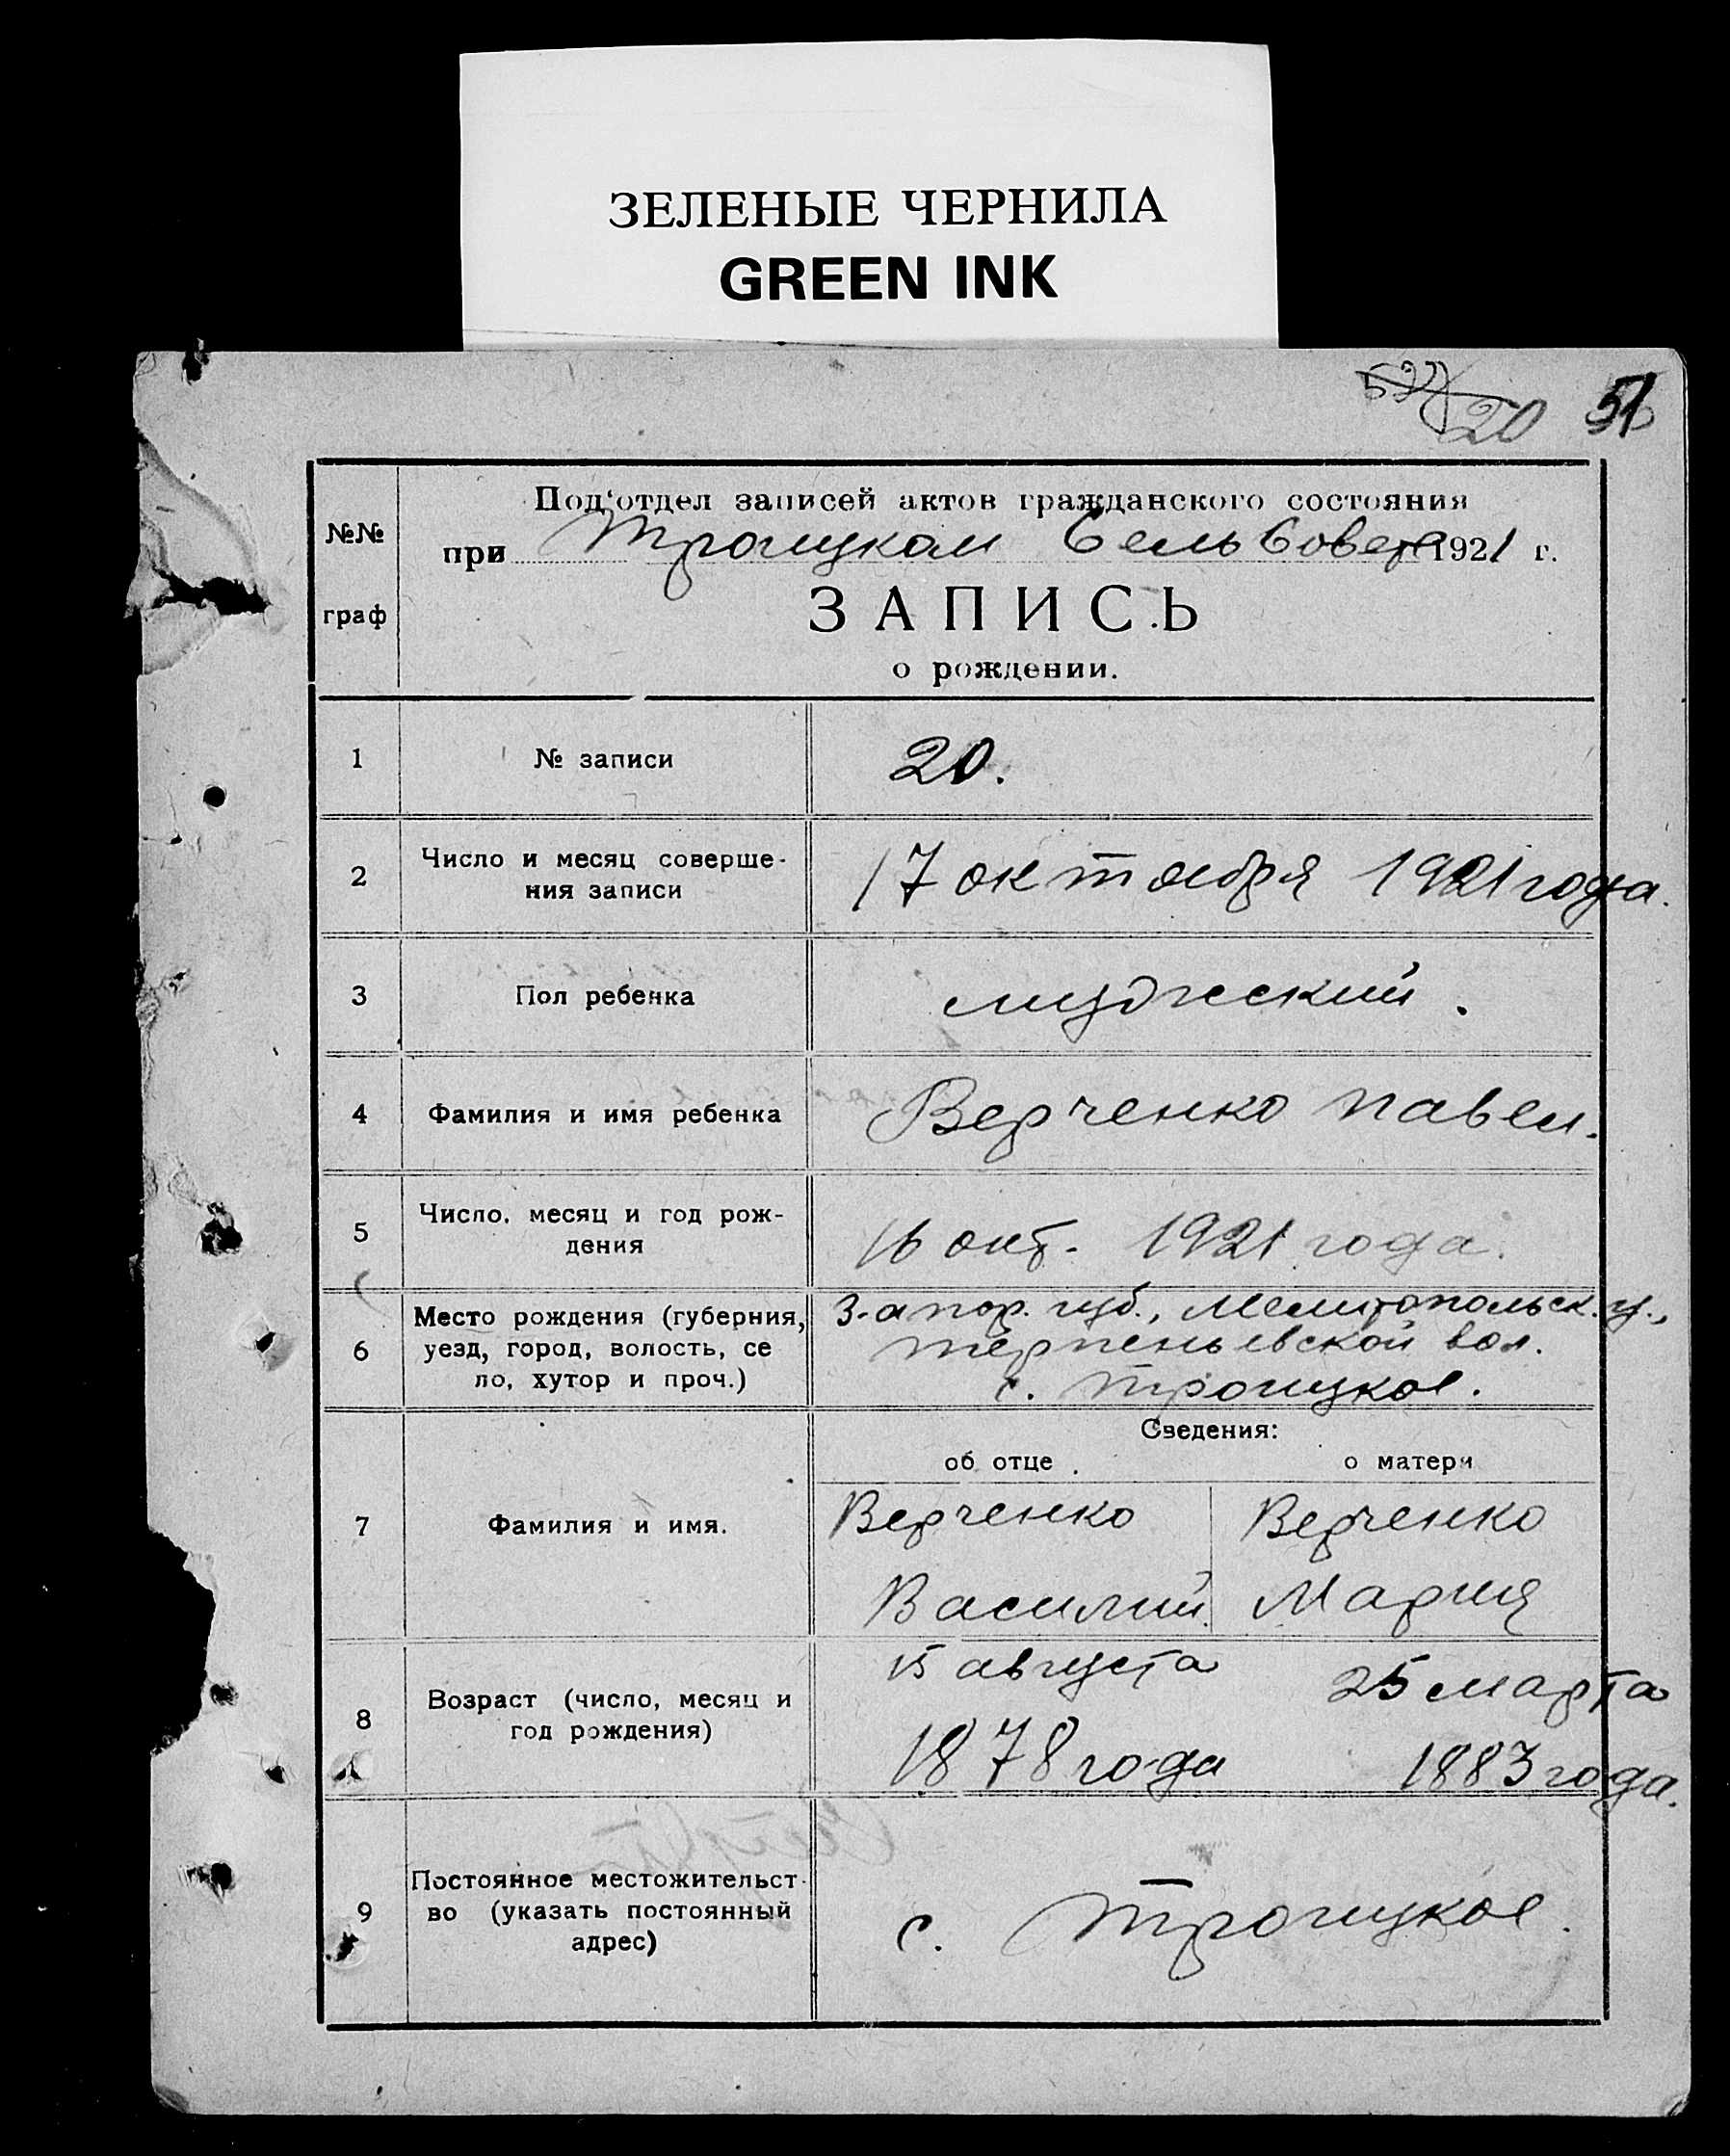 ЗЕЛЕНЫЕ ЧЕРНИЛА
GREEN INK
20 51
№№ граф
Под‘отдел записей актов гражданского состояния
при Троицком СельСовете 1921 г.
ЗАПИСЬ
о рождении.
1 № записи 20.
2 Число и месяц соверше-
ния записи 17 октября 1921 года.
3 Пол ребенка мужеский.
4 Фамилия и имя ребенка Верченко Павел.
5 Число, месяц и год рож-
дения 16 окт. 1921 года.
6 Место рождения (губерния,
уезд, город, волость, се
ло, хутор и проч.)
Запор. губ., Мелитопольск. у.,
Терпеньевской вол.
с. Троицкое.
Сведения:
об отце о матери
7 Фамилия и имя.
Верченко Верченко
Василий Мария
8 Возраст (число, месяц и
год рождения)
15 августа 25 марта
1878 года 1883 года.
9 Постоянное местожительст-
во (указать постоянный
адрес)
с. Троицкое.